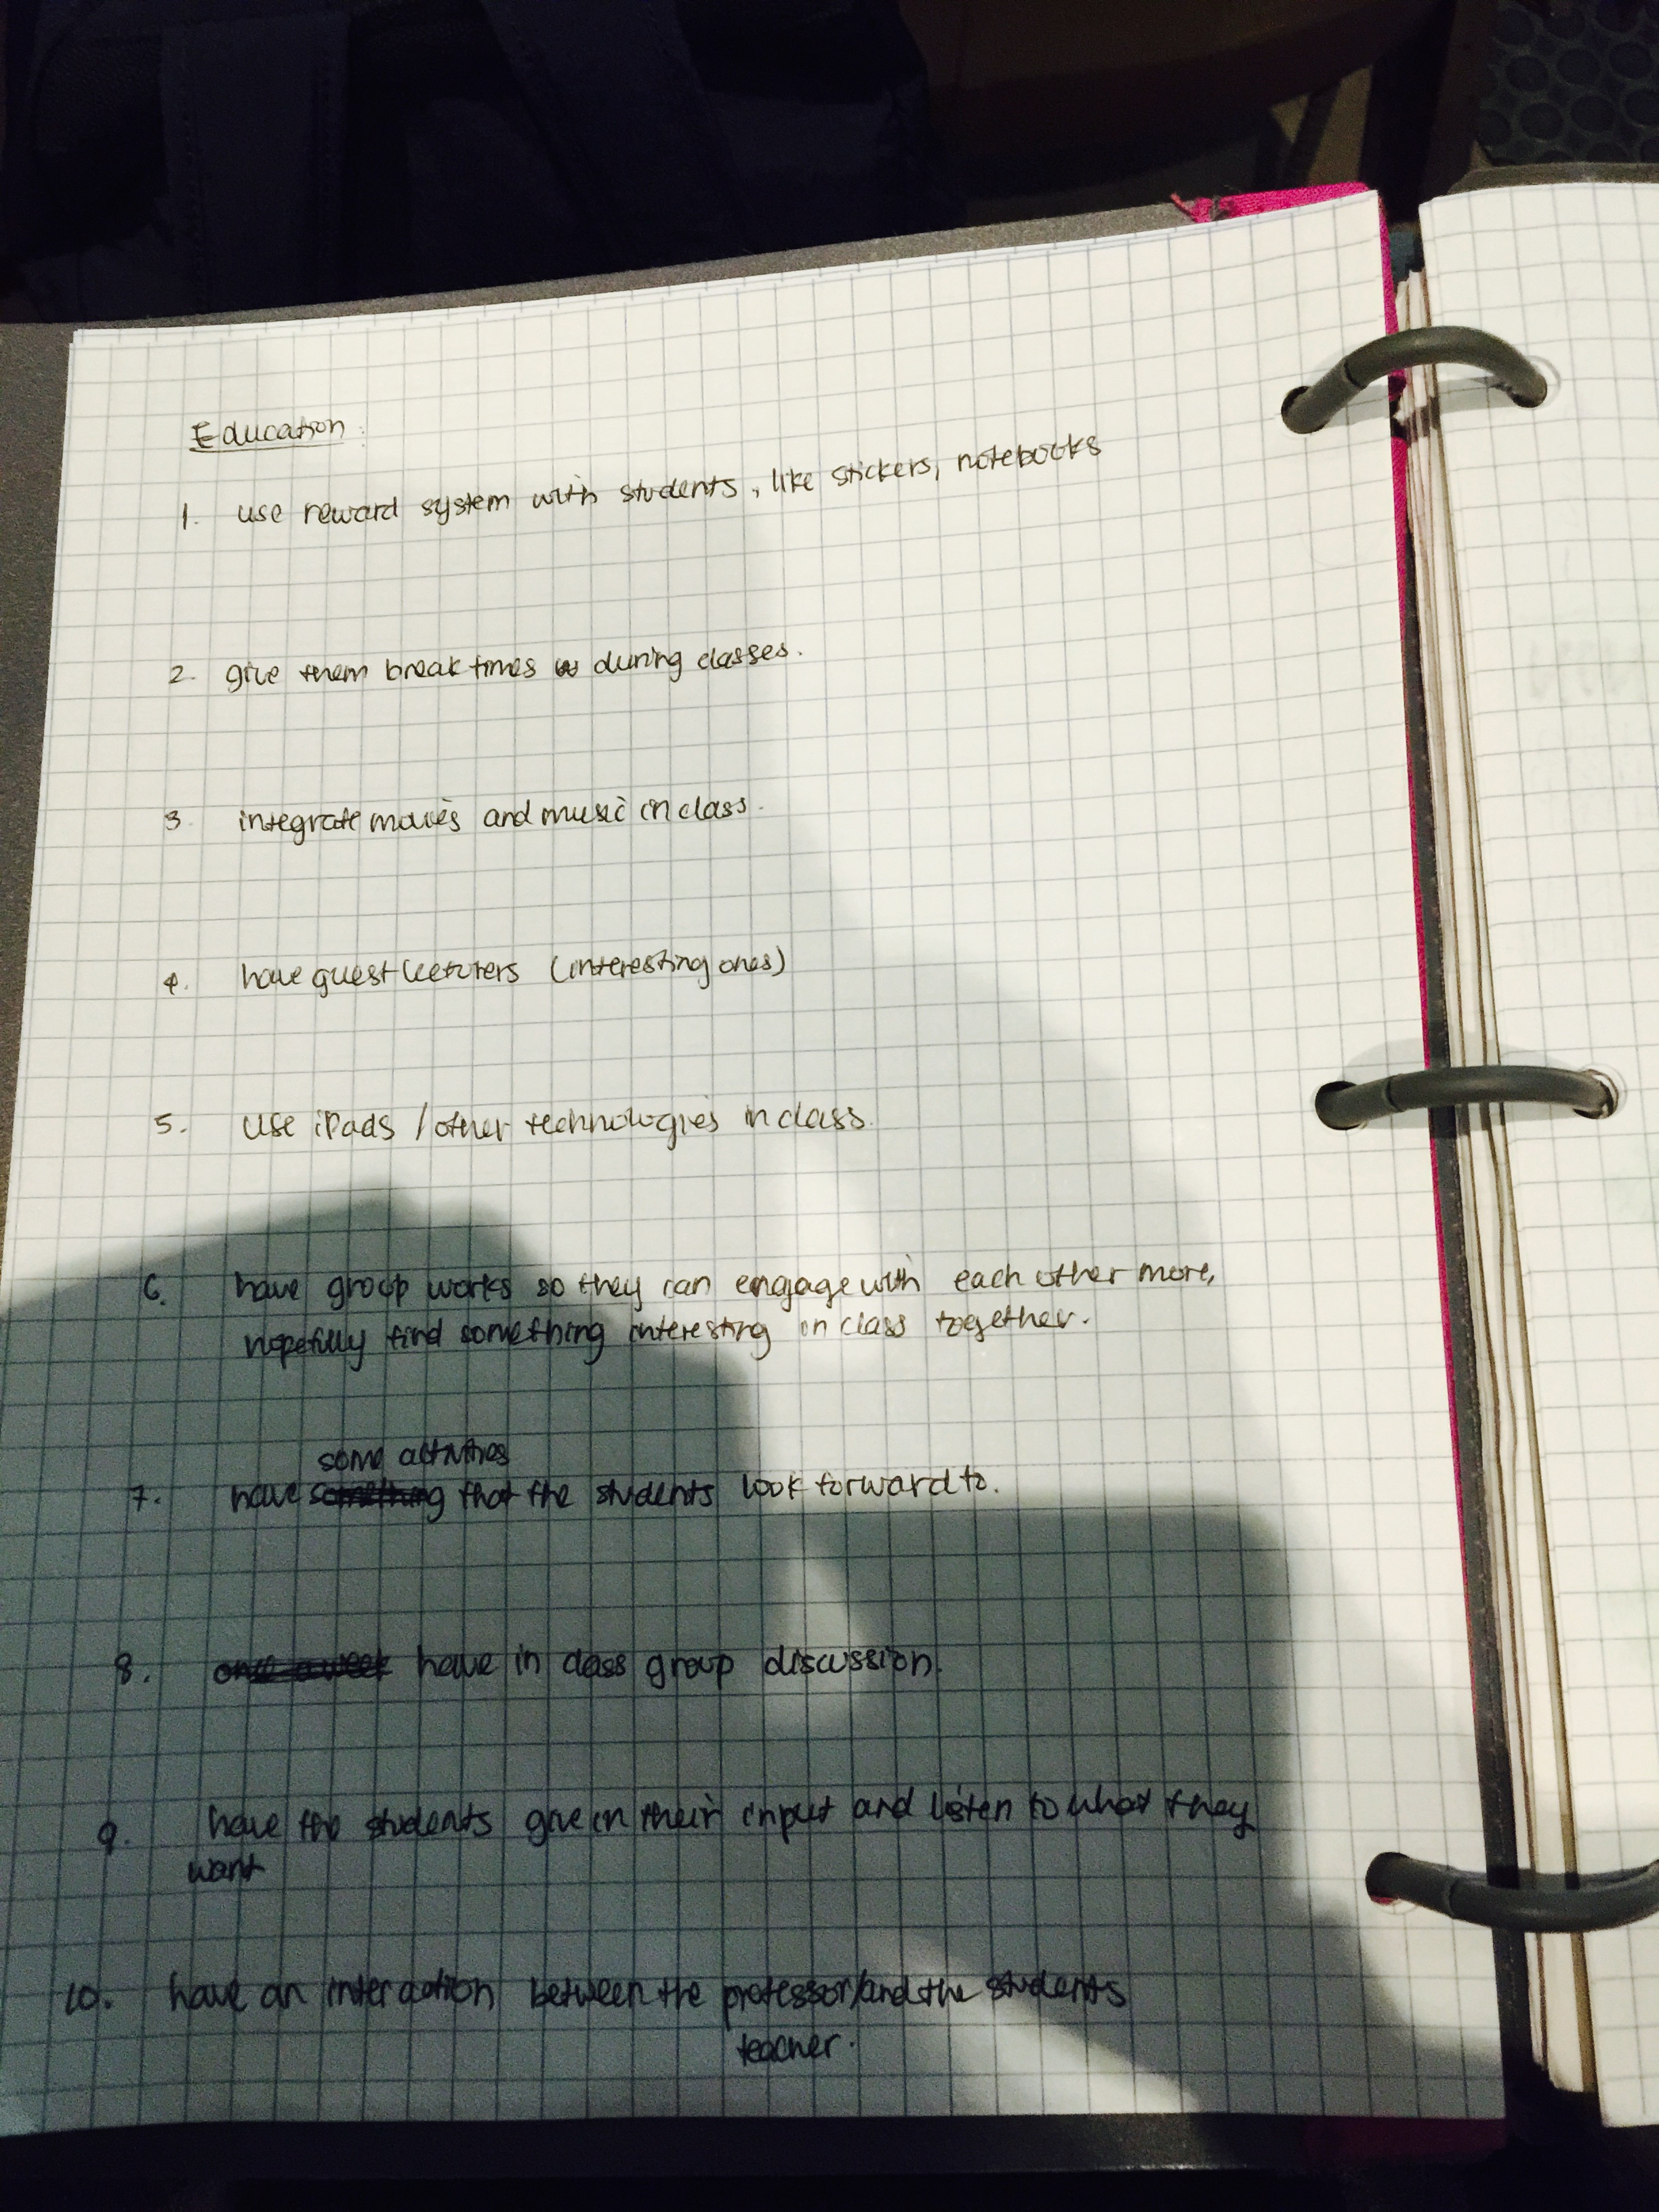 Education:
1. use reward system with students, like stickers, notebooks
2. give them break times during classes.
3. integrate movies and music in class.
4. have guest lecturers (interesting ones)
5. use iPads / other technologies in class.
6. have group works so they can engage with each other more,
hopefully find something interesting in class together.
some activities
7. have something that the students look forward to.
8. once a week have in class group discussion.
9. have the students give in their input and listen to what they
want
10. have an interaction between the professor/and the students
teacher.